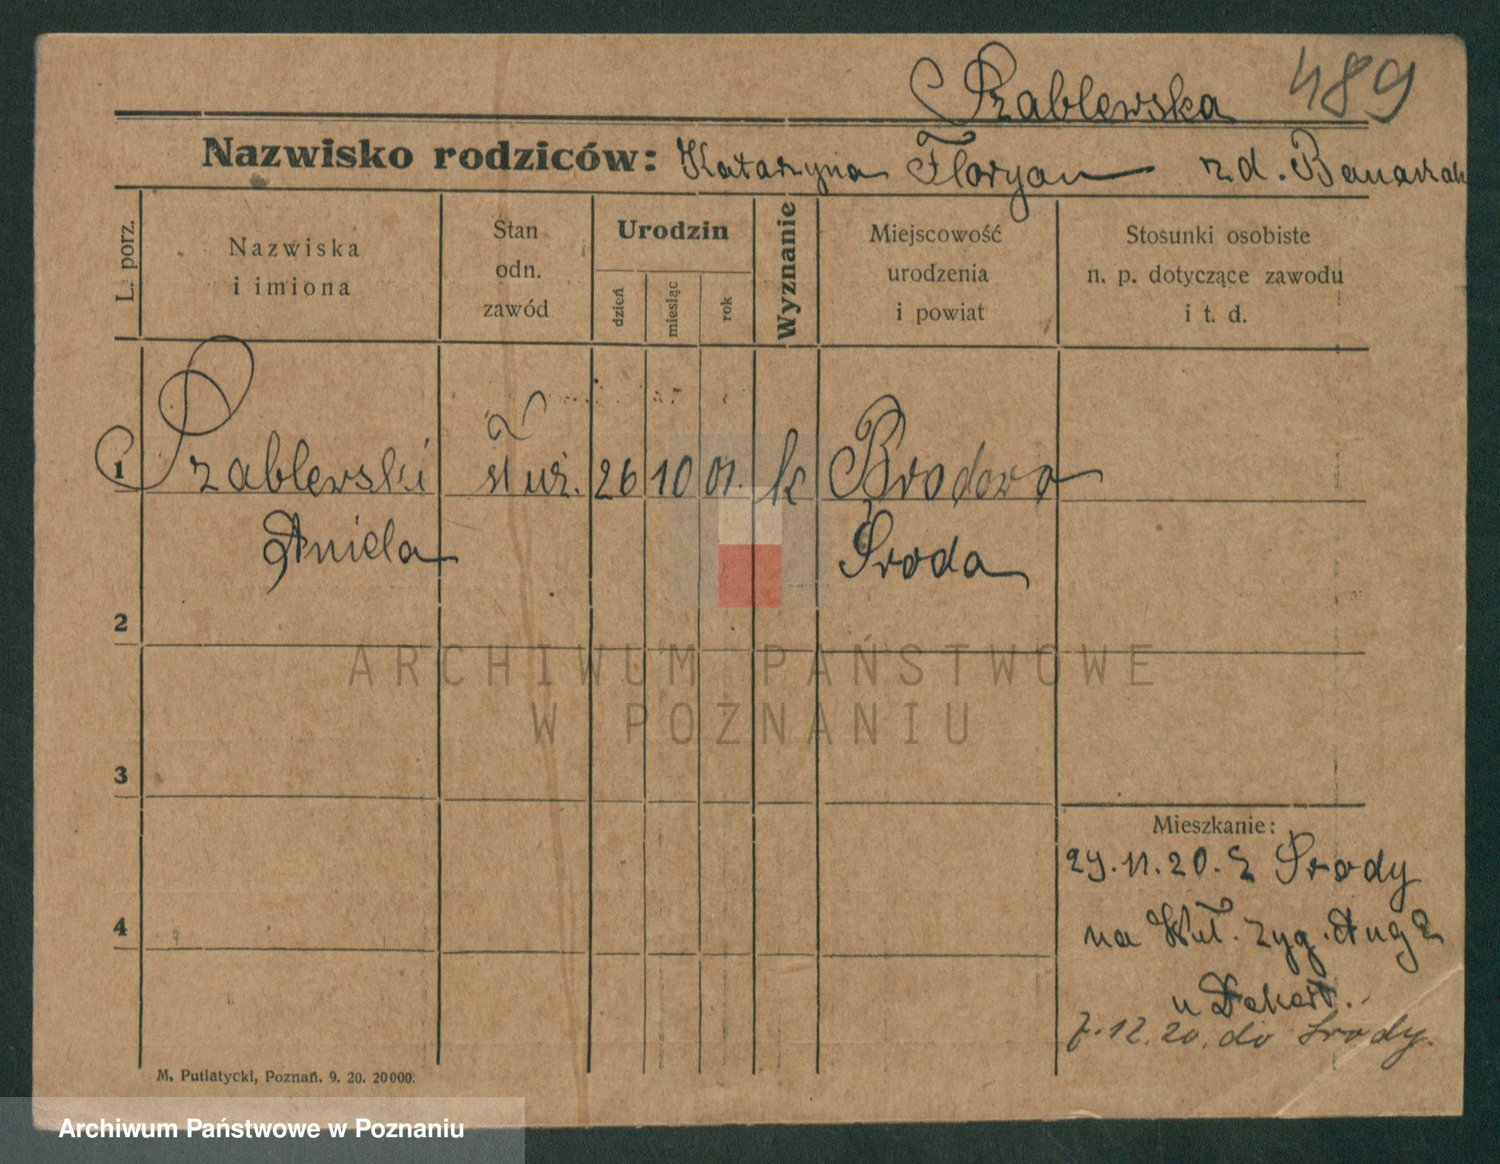 Rzablewska 489
Nazwisko rodziców: Katarzyna Floryan z d. Banaszak
L. porz.
Nazwiska
i imiona
Stan
odn.
zawód
Urodzin
dzień
miesiąc
rok
Wyznanie
Miejscowość
urodzenia
i powiat
Stosunki osobiste
n. p. dotyczące zawodu
i t. d.
1 Rzablewski służ. 26 10 01. k Brodowo
Aniela Środa
2
3
4
Mieszkanie:
29.11.20. z Środy
na Wuł. Zyg. Aug 2
u Dekert.
7.12.20. do Środy.
M. Putiatycki, Poznań. 9. 20. 20000.
ARCHIWUM PAŃSTWOWE
W POZNANIU
Archiwum Państwowe w Poznaniu